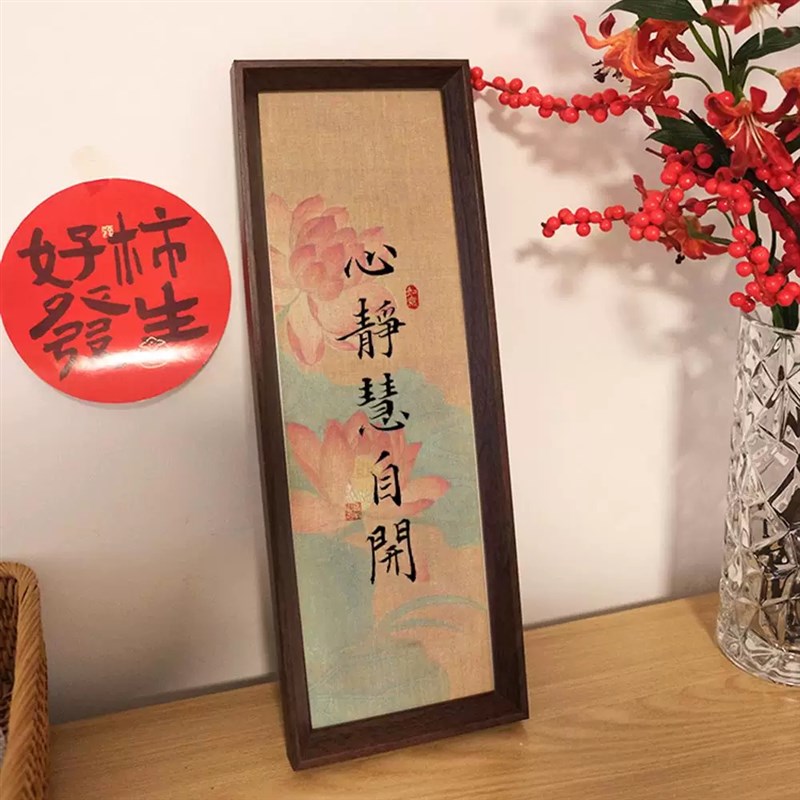 好柿
發生
心靜慧自開